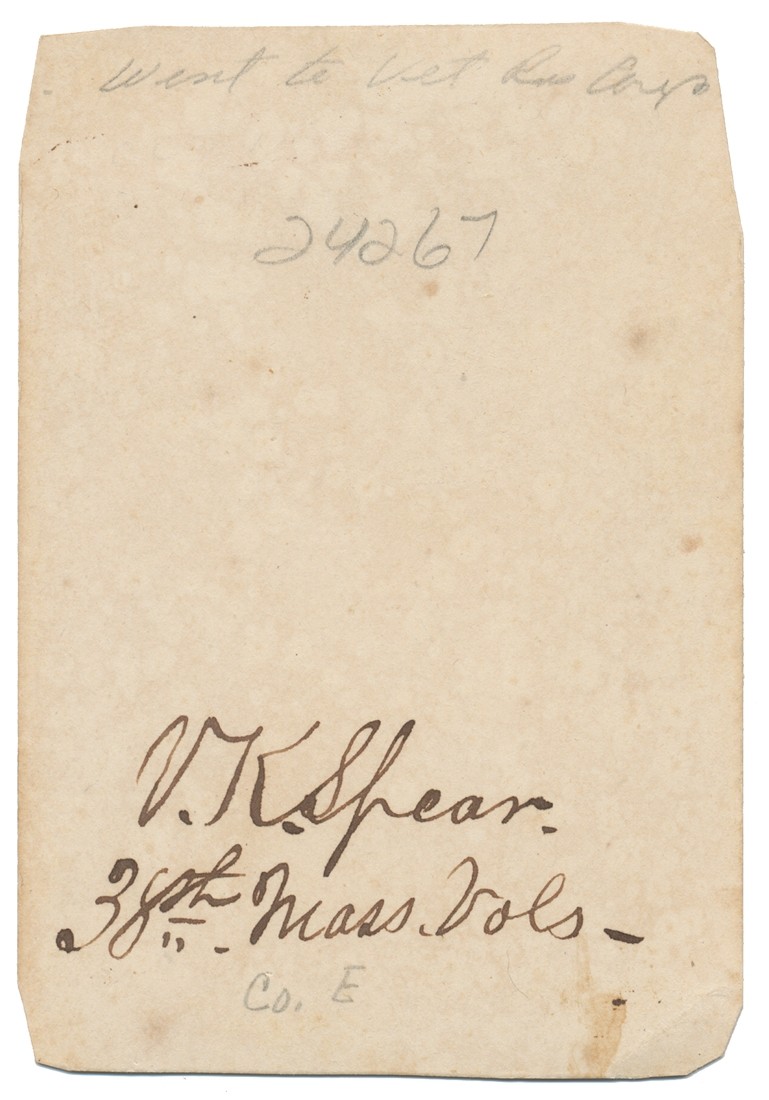 Went to Vet Res Corps
24267
V. K. Spear.
38th. Mass. Vols -
Co. E